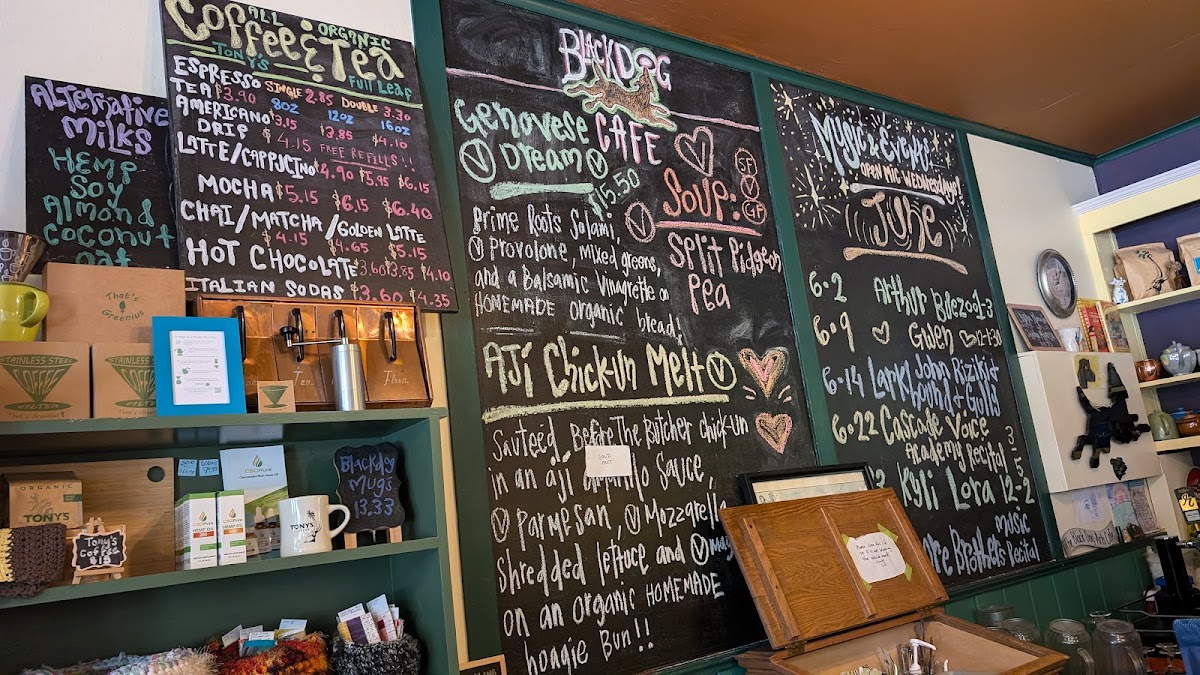 Alternative
Milks
Hemp
Soy
Almond &
Coconut
oat
ALL
ORGANIC
Coffee & Tea
TONY'S
Full Leaf
ESPRESSO SINGLE 2.85 DOUBLE 3.30
TEA $3.90 8oz 12oz 16oz
AMERICANO $3.15 $3.85 $4.10
DRIP $4.15 FREE REFILLS!!
LATTE/CAPPUCINO $4.90 $5.95 $6.15
MOCHA $5.15 $6.15 $6.40
CHAI/MATCHA/GOLDEN LATTE
$4.15 $4.65 $5.15
HOT CHOCOLATE $3.60 $3.85 $4.10
ITALIAN SODAS $3.60 $4.35
BLACKDOG
CAFE
Genovese
Dream
V V
$15.50
Prime Roots Salami,
V Provolone, mixed greens,
and a Balsamic Vinagrette on
HOMEMADE organic bread!
SF
V
GF
SOUP:
V
Split Pidgeon
Pea
AJí Chick-un Melt V
Sauteéd, Before The Butcher chick-un
SOLD
OUT
in an ají amarillo Sauce,
V Parmesan, V Mozzarella
shredded lettuce and V
on an organic HOMEMADE
hoagie Bun!!
Music & Events
OPEN MIC WEDNESDAY!
JUNE
6.2 Arthur
6.9 Gwen 12-1:30
6.14 Larry John Rizik
Hound & Gold
6.22 Cascade Voice
Academy Recital 3
Kyli Lora 12-2
Brothers Recital
Music
That's
Greenius
STAINLESS STEEL
COFFEE
FILTER
That's Greenius
STAINLESS STEEL
COFFEE
FILTER
ORGANIC
TONY'S
CBDPure
CBDPure
HEMP OIL
CBDPure
HEMP OIL
TONY'S
Tony's
Coffee
$15
Blackdog
Mugs
13.33